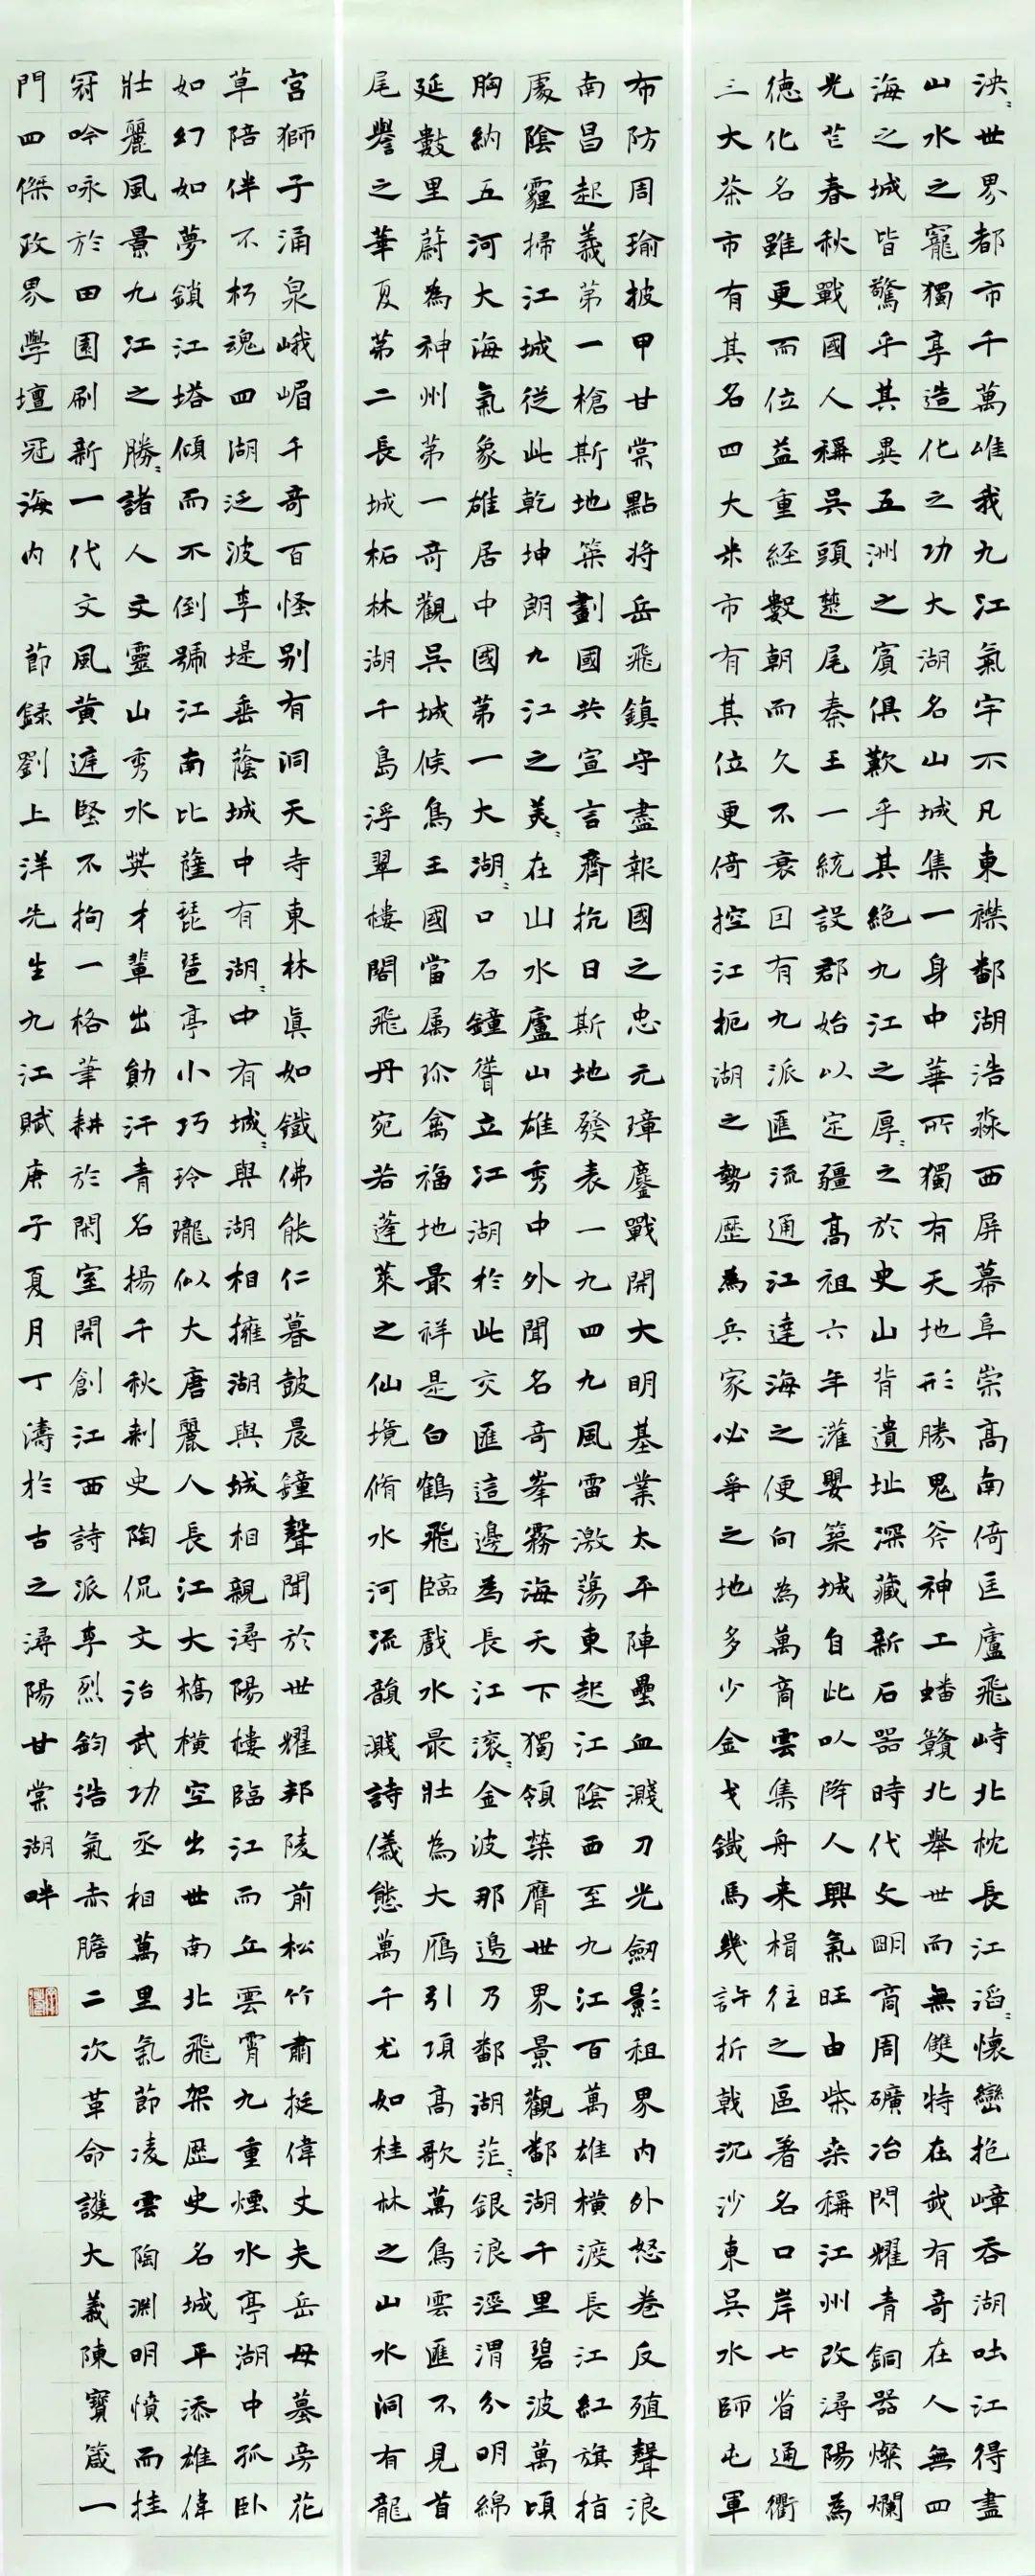 泱〻世界都市千萬唯我九江氣宇不凡東襟鄱湖浩淼西屏幕阜崇高南倚匡廬飛峙北枕長江滔〻懷巒抱嶂吞湖吐江得盡
山水之寵獨享造化之功大湖名山城集一身中華所獨有天地形勝鬼斧神工蟠贛北舉世而無雙特在哉有奇在人無四
海之城皆驚乎其異五洲之賓俱歎乎其絕九江之厚〻之於史山背遺址深藏新石器時代文明商周礦冶閃耀青銅器燦爛
光芒春秋戰國人稱吳頭楚尾秦王一統設郡始以定疆高祖六年灌嬰築城自此以降人興氣旺由柴桑稱江州改潯陽為
德化名雖更而位益重經數朝而久不衰回有九派匯流通江達海之便向為萬商雲集舟来楫往之區著名口岸七省通衢
三大茶市有其名四大米市有其位更倚控江扼湖之勢歷為兵家必爭之地多少金戈鐵馬幾許折戟沉沙東吳水師屯軍
布防周瑜披甲甘棠點將岳飛鎮守盡報國之忠元璋鏖戰開大明基業太平陣壘血濺刀光劍影租界内外怒卷反殖聲浪
南昌起義第一槍斯地築劃國共宣言齊抗日斯地發表一九四九風雷激蕩東起江陰西至九江百萬雄橫渡長江紅旗指
處陰霾掃江城從此乾坤朗九江之美〻在山水廬山雄秀中外聞名奇峯霧海天下獨領榮膺世界景觀鄱湖千里碧波萬頃
胸納五河大海氣象雄居中國第一大湖〻口石鐘聳立江湖於此交匯這邊為長江滾〻金波那邊乃鄱湖茫〻銀浪涇渭分明綿
延數里蔚為神州第一奇觀吳城候鳥王國當屬珍禽福地最祥是白鶴飛臨戲水最壯為大雁引項高歌萬鳥雲匯不見首
尾譽之華夏第二長城柘林湖千島浮翠樓閣飛丹宛若蓬萊之仙境脩水河流韻濺詩儀態萬千尤如桂林之山水洞有龍
宮獅子涌泉峨嵋千奇百怪别有洞天寺東林真如鐵佛能仁暮鼓晨鐘聲聞於世耀邦陵前松竹肅挺偉丈夫岳母墓旁花
草陪伴不朽魂四湖泛波李堤垂蔭城中有湖〻中有城〻與湖相擁湖與城相親潯陽樓臨江而立雲霄九重煙水亭湖中孤卧
如幻如夢鎖江塔傾而不倒號江南比薩琵琶亭小巧玲瓏似大唐麗人長江大橋橫空出世南北飛架歷史名城平添雄偉
壯麗風景九江之勝〻諸人文靈山秀水英才輩出勛汗青名揚千秋刺史陶侃文治武功丞相萬里氣節凌雲陶淵明憤而挂
冠吟咏於田園刷新一代文風黄庭堅不拘一格筆耕於閑室開創江西詩派李烈鈞浩氣赤膽二次革命護大義陳寶箴一
門四傑政界學壇冠海内 節録劉上洋先生九江賦庚子夏月丁濤於古之潯陽甘棠湖畔